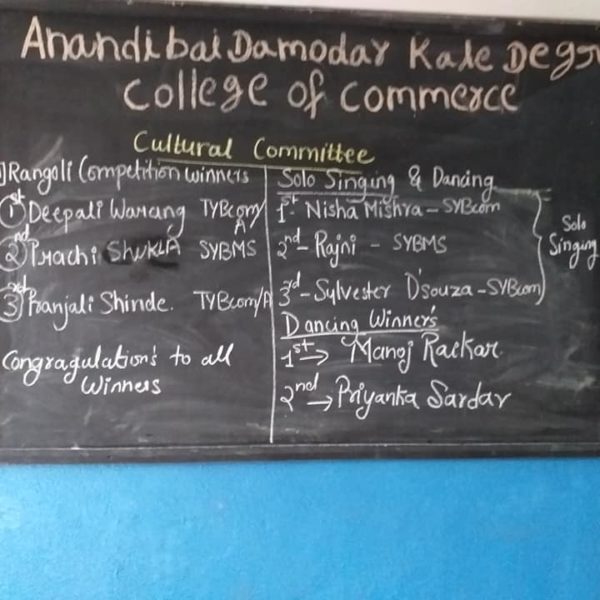 Anandibai Damodar Kale Degr
College of Commerce
Cultural Committee
1) Rangoli Competition winners
1st Deepali Warang TYBcom/A
2nd Prachi SHUKLA SYBMS
3rd Pranjali Shinde. TYBcom/A
Congragulation's to all
Winners
Solo Singing & Dancing
1st- Nisha Mishra - SYBcom
2nd- Rajni - SYBMS
3rd- Sylvester D'souza - SYBcom
Solo
Singing
Dancing Winner's
1st → Manoj Raikar
2nd → Priyanka Sardar